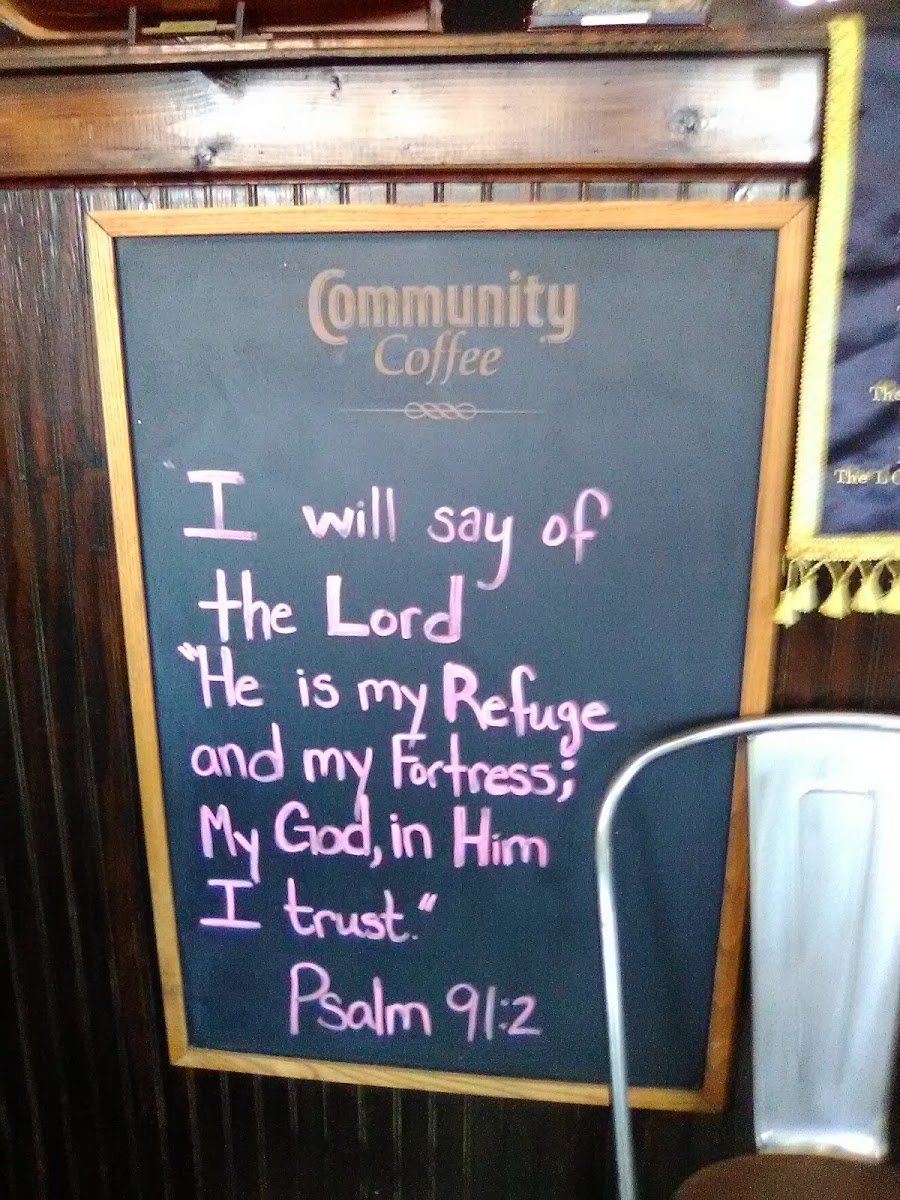 Community
Coffee
I will say of
the Lord
"He is my Refuge
and my Fortress;
My God, in Him
I trust."
Psalm 91:2
The
The LO